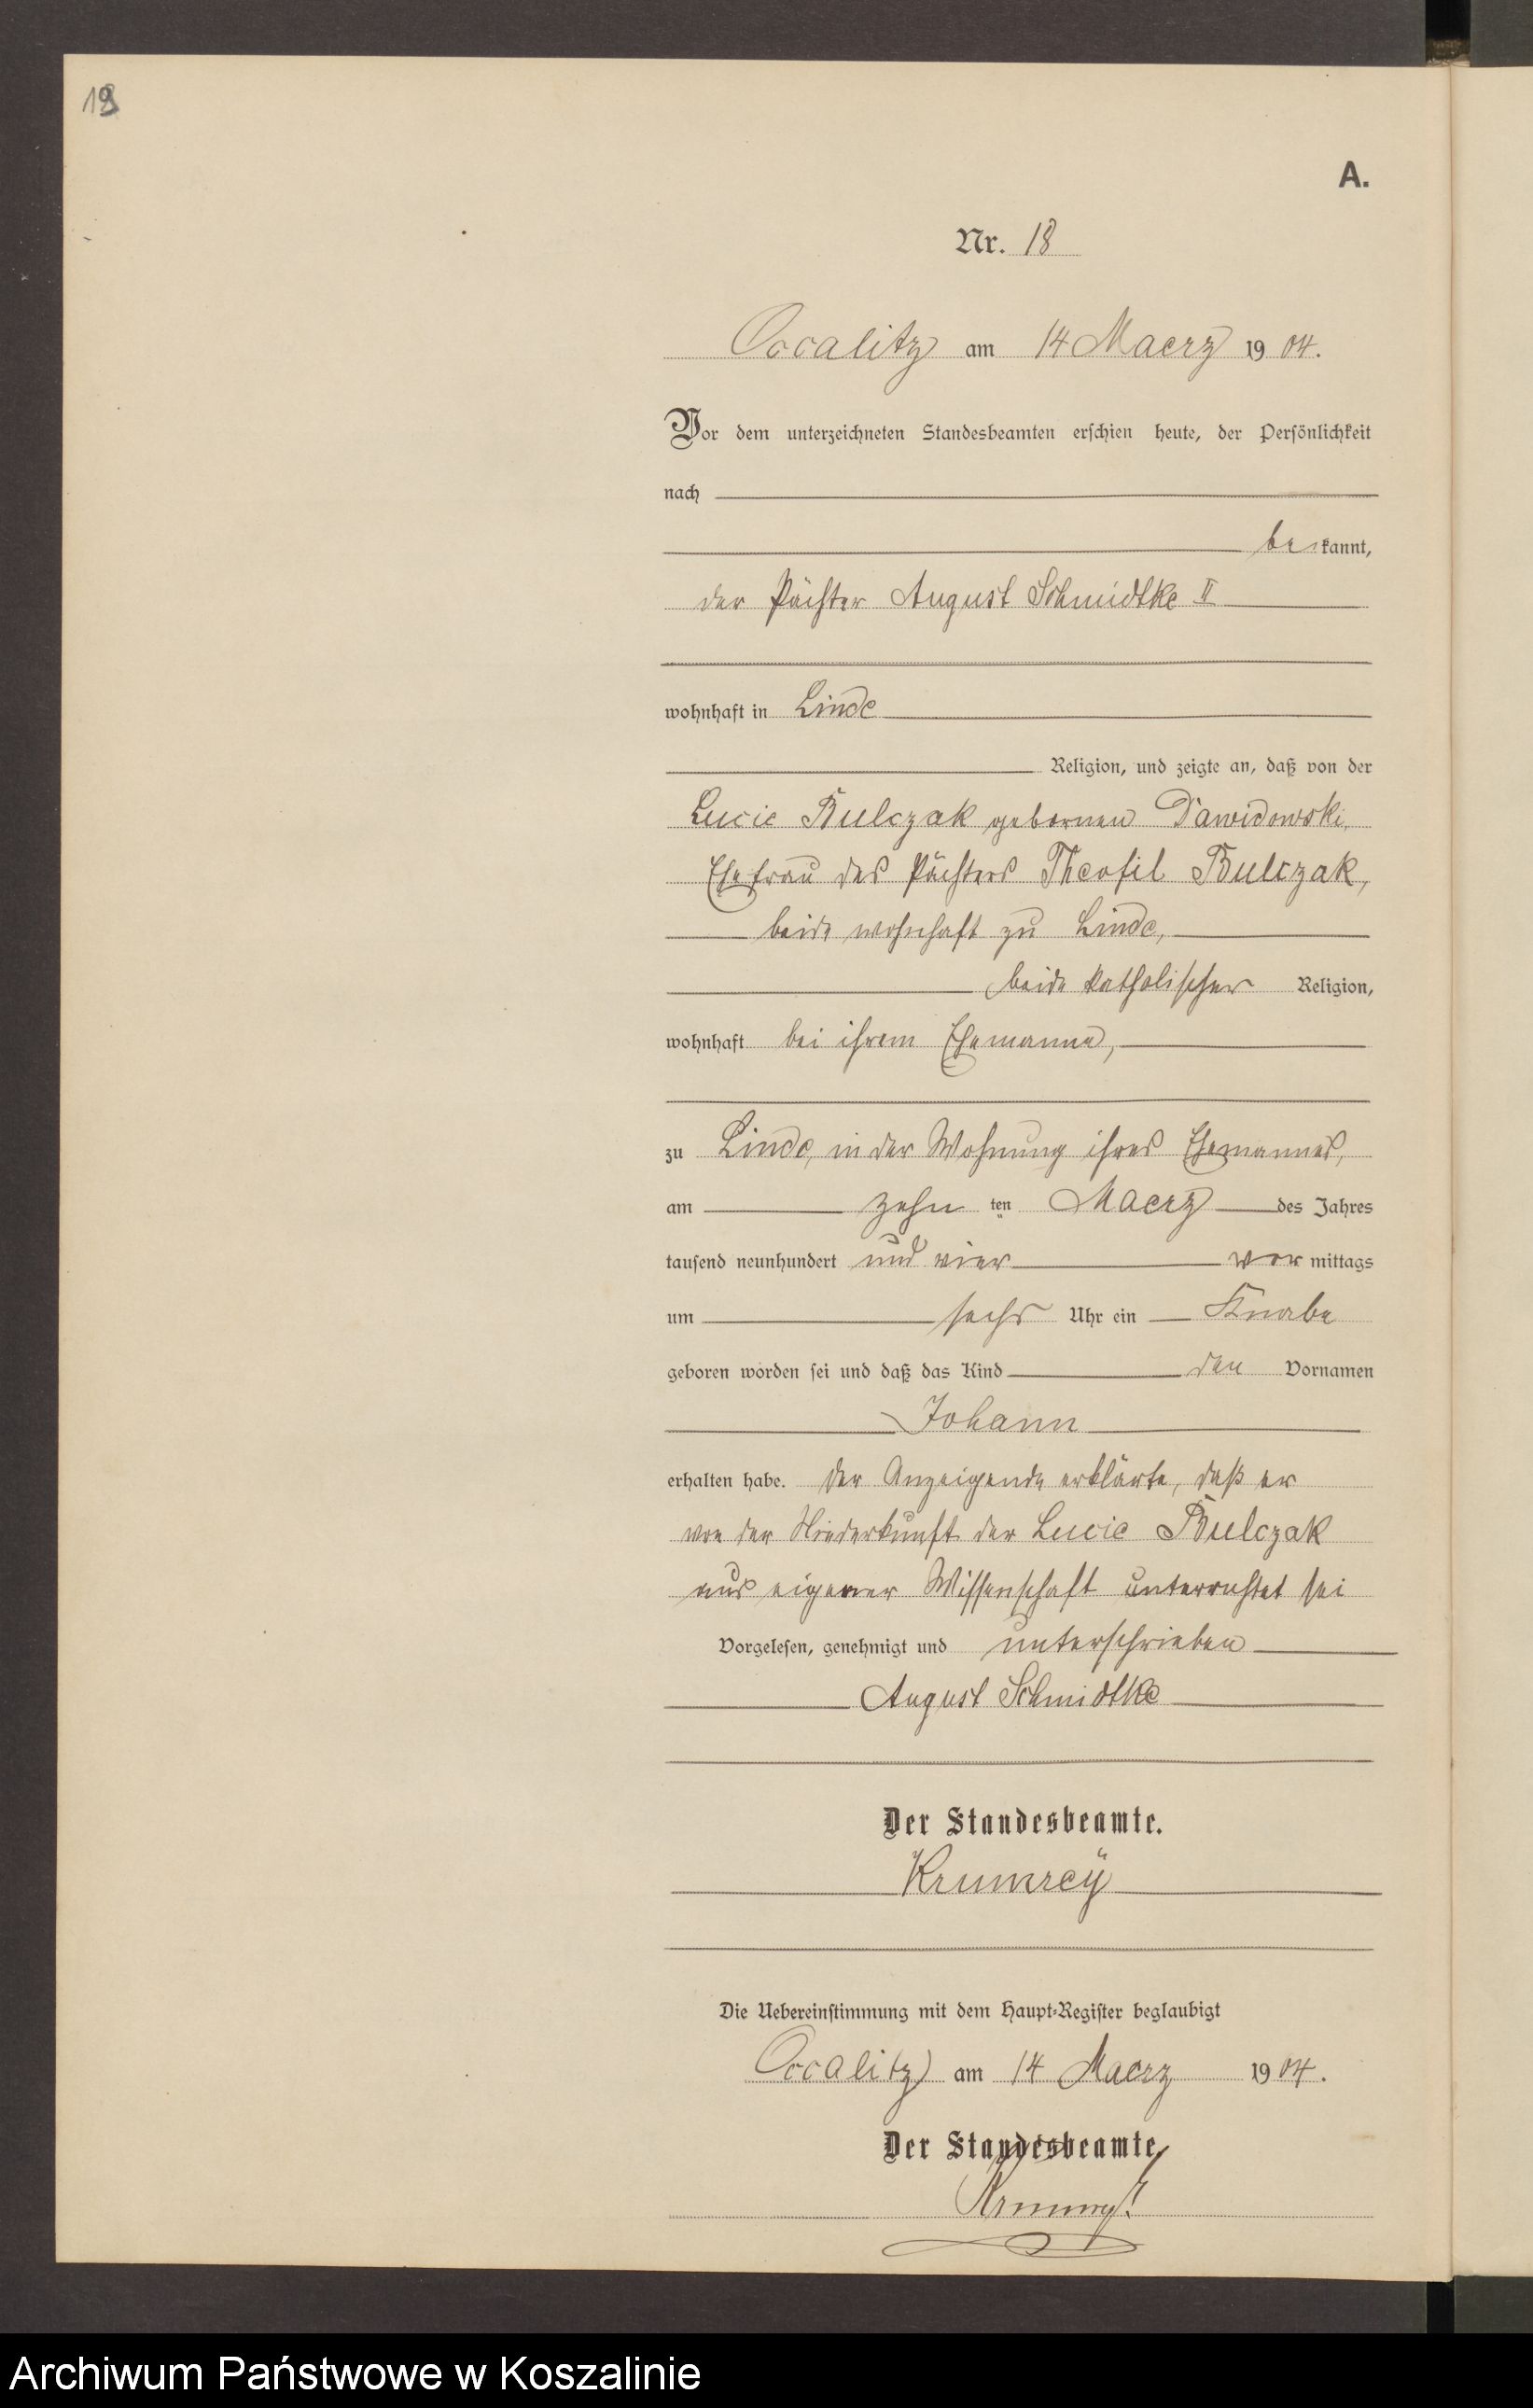 19
A.
Nr. 18
Occalitz am 14 Maerz 1904.
Vor dem unterzeichneten Standesbeamten erschien heute, der Persönlichkeit
nach
bekannt,
der Pächter August Schmidtke II
wohnhaft in Linde
Religion, und zeigte an, daß von der
Lucie Bulczak gebornen Dawidowski,
Ehefrau des Pächters Theofil Bulczak,
beide wohnhaft zu Linde,
beide katholischer Religion,
wohnhaft bei ihrem Ehemanne,
zu Linde, in der Wohnung ihres Ehemannes,
am zehnten Maerz des Jahres
tausend neunhundert und vier vormittags
um sechs Uhr ein Knabe
geboren worden sei und daß das Kind den Vornamen
Johann
erhalten habe. Der Anzeigende erklärte, daß er
von der Niederkunft der Lucie Bulczak
aus eigener Wissenschaft unterrichtet sei
Vorgelesen, genehmigt und unterschrieben
August Schmidtke
Der Standesbeamte.
Krumrey
Die Uebereinstimmung mit dem Haupt-Register beglaubigt
Occalitz am 14 Maerz 1904.
Der Standesbeamte
Krumrey
Archiwum Państwowe w Koszalinie